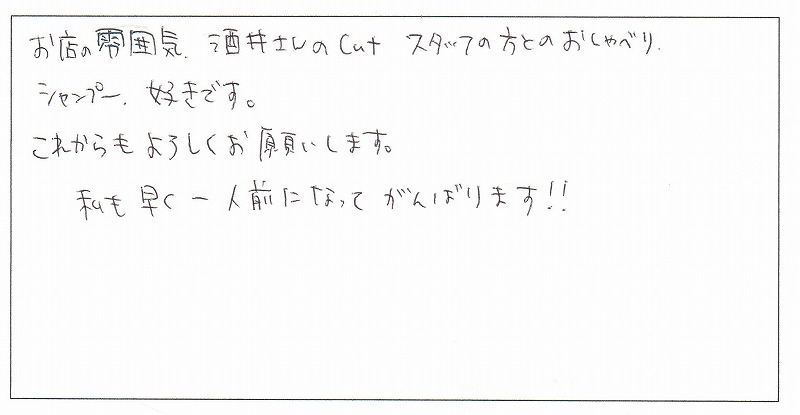 お店の雰囲気、酒井さんのCut スタッフの方とのおしゃべり、
シャンプー、好きです。
これからもよろしくお願いします。
私も早く一人前になってがんばります!!